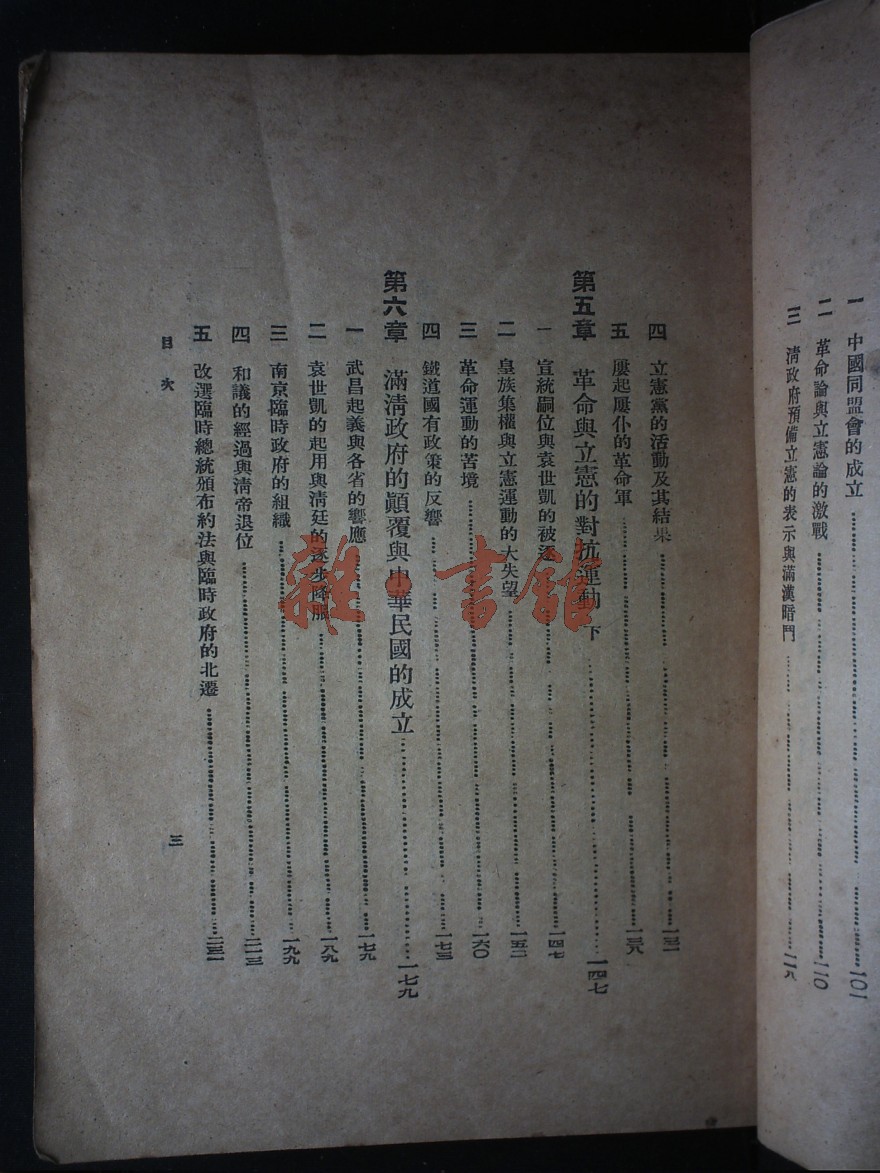 一 中國同盟會的成立 一〇一
二 革命論與立憲論的激戰 一一〇
三 清政府預備立憲的表示與滿漢暗鬥 一一八
四 立憲黨的活動及其結果 一三一
五 屢起屢仆的革命軍 一三八
第五章 革命與立憲的對抗運動 下 一四七
一 宣統嗣位與袁世凱的被逐 一四七
二 皇族集權與立憲運動的大失望 一五二
三 革命運動的苦境 一六〇
四 鐵道國有政策的反響 一七三
第六章 滿清政府的顚覆與中華民國的成立 一七九
一 武昌起義與各省的響應 一七九
二 袁世凱的起用與清廷的逐步降服 一八九
三 南京臨時政府的組織 一九九
四 和議的經過與清帝退位 二一三
五 改選臨時總統頒布約法與臨時政府的北遷 二三一
目次
三
雜·書館